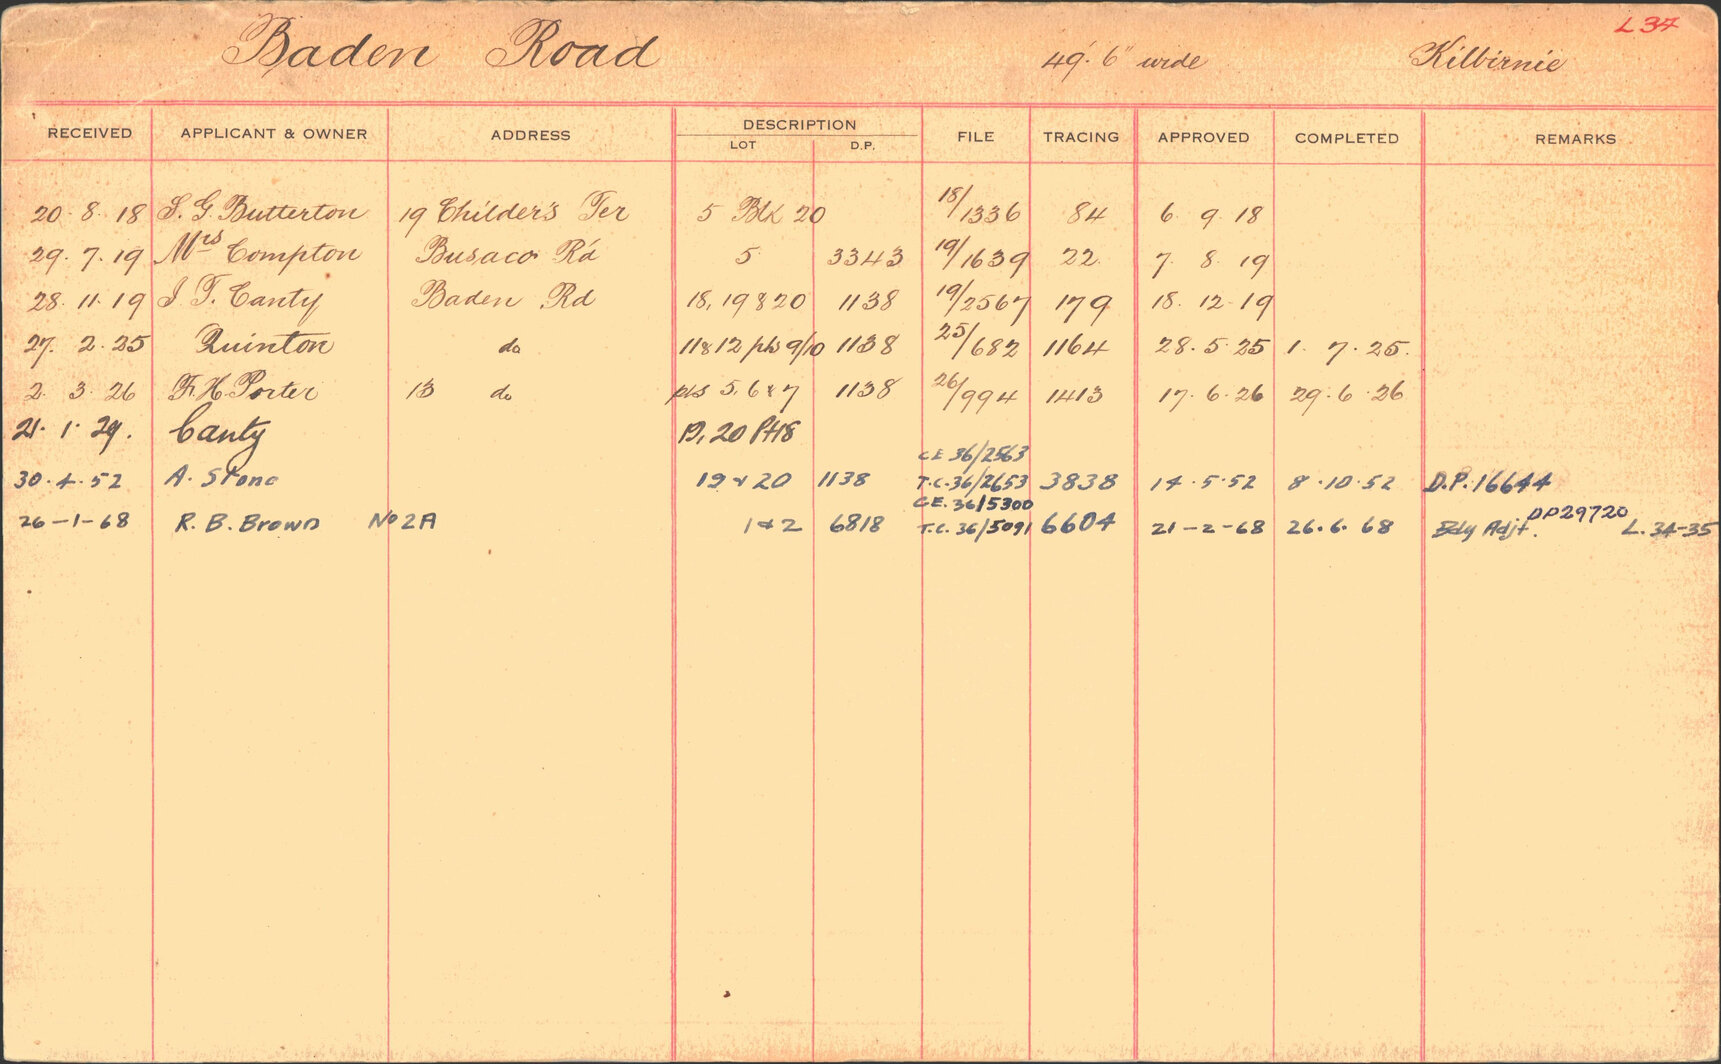 L 34
Baden Road 49' 6" wide Kilbirnie
RECEIVED APPLICANT & OWNER ADDRESS DESCRIPTION FILE TRACING APPROVED COMPLETED REMARKS
LOT D.P.
20. 8. 18 S. G. Butterton 19 Childer's Ter 5 Blk 20 18/1336 84 6 9 18
29. 7. 19 Mrs Compton Busaco Rd 5 3343 19/1639 22 7 8 19
28. 11. 19 J. T. Canty Baden Rd 18, 19 & 20 1138 19/2567 179 18. 12. 19
27. 2. 25 Quinton do 11 & 12 pts 9/10 1138 25/682 1164 28. 5. 25 1. 7. 25.
2. 3. 26 F. H. Porter 13 do pts 5, 6 & 7 1138 26/994 1413 17. 6. 26 29. 6. 26
21. 1. 29. Canty 19, 20 Pt 18
C.E 36/2563
30. 4. 52 A. Stone 19 & 20 1138 T.C. 36/2653 3838 14. 5. 52 8. 10. 52 D.P. 16644
C.E. 36/5300
26-1-68 R. B. Brown No 2A 1 & 2 6818 T.C. 36/5091 6604 21-2-68 26. 6. 68 Bdy Adjt. DP29720 L. 34-35